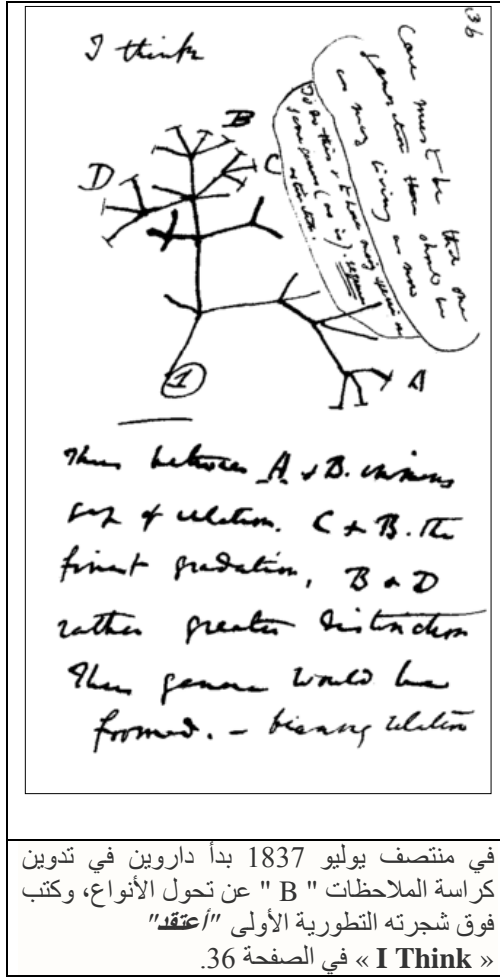 36
I think
Case must be that one
generation then should be
as many living as now
To do this & to have many species in
same genus (as is). requires
extinction.
B
C
D
A
1
Thus between A & B. immens
gap of relation. C & B. the
finest gradation, B & D
rather greater distinction
Thus genera would be
formed. — bearing relation
في منتصف يوليو 1837 بدأ داروين في تدوين
كراسة الملاحظات " B " عن تحول الأنواع، وكتب
فوق شجرته التطورية الأولى "أعتقد"
« I Think » في الصفحة 36.